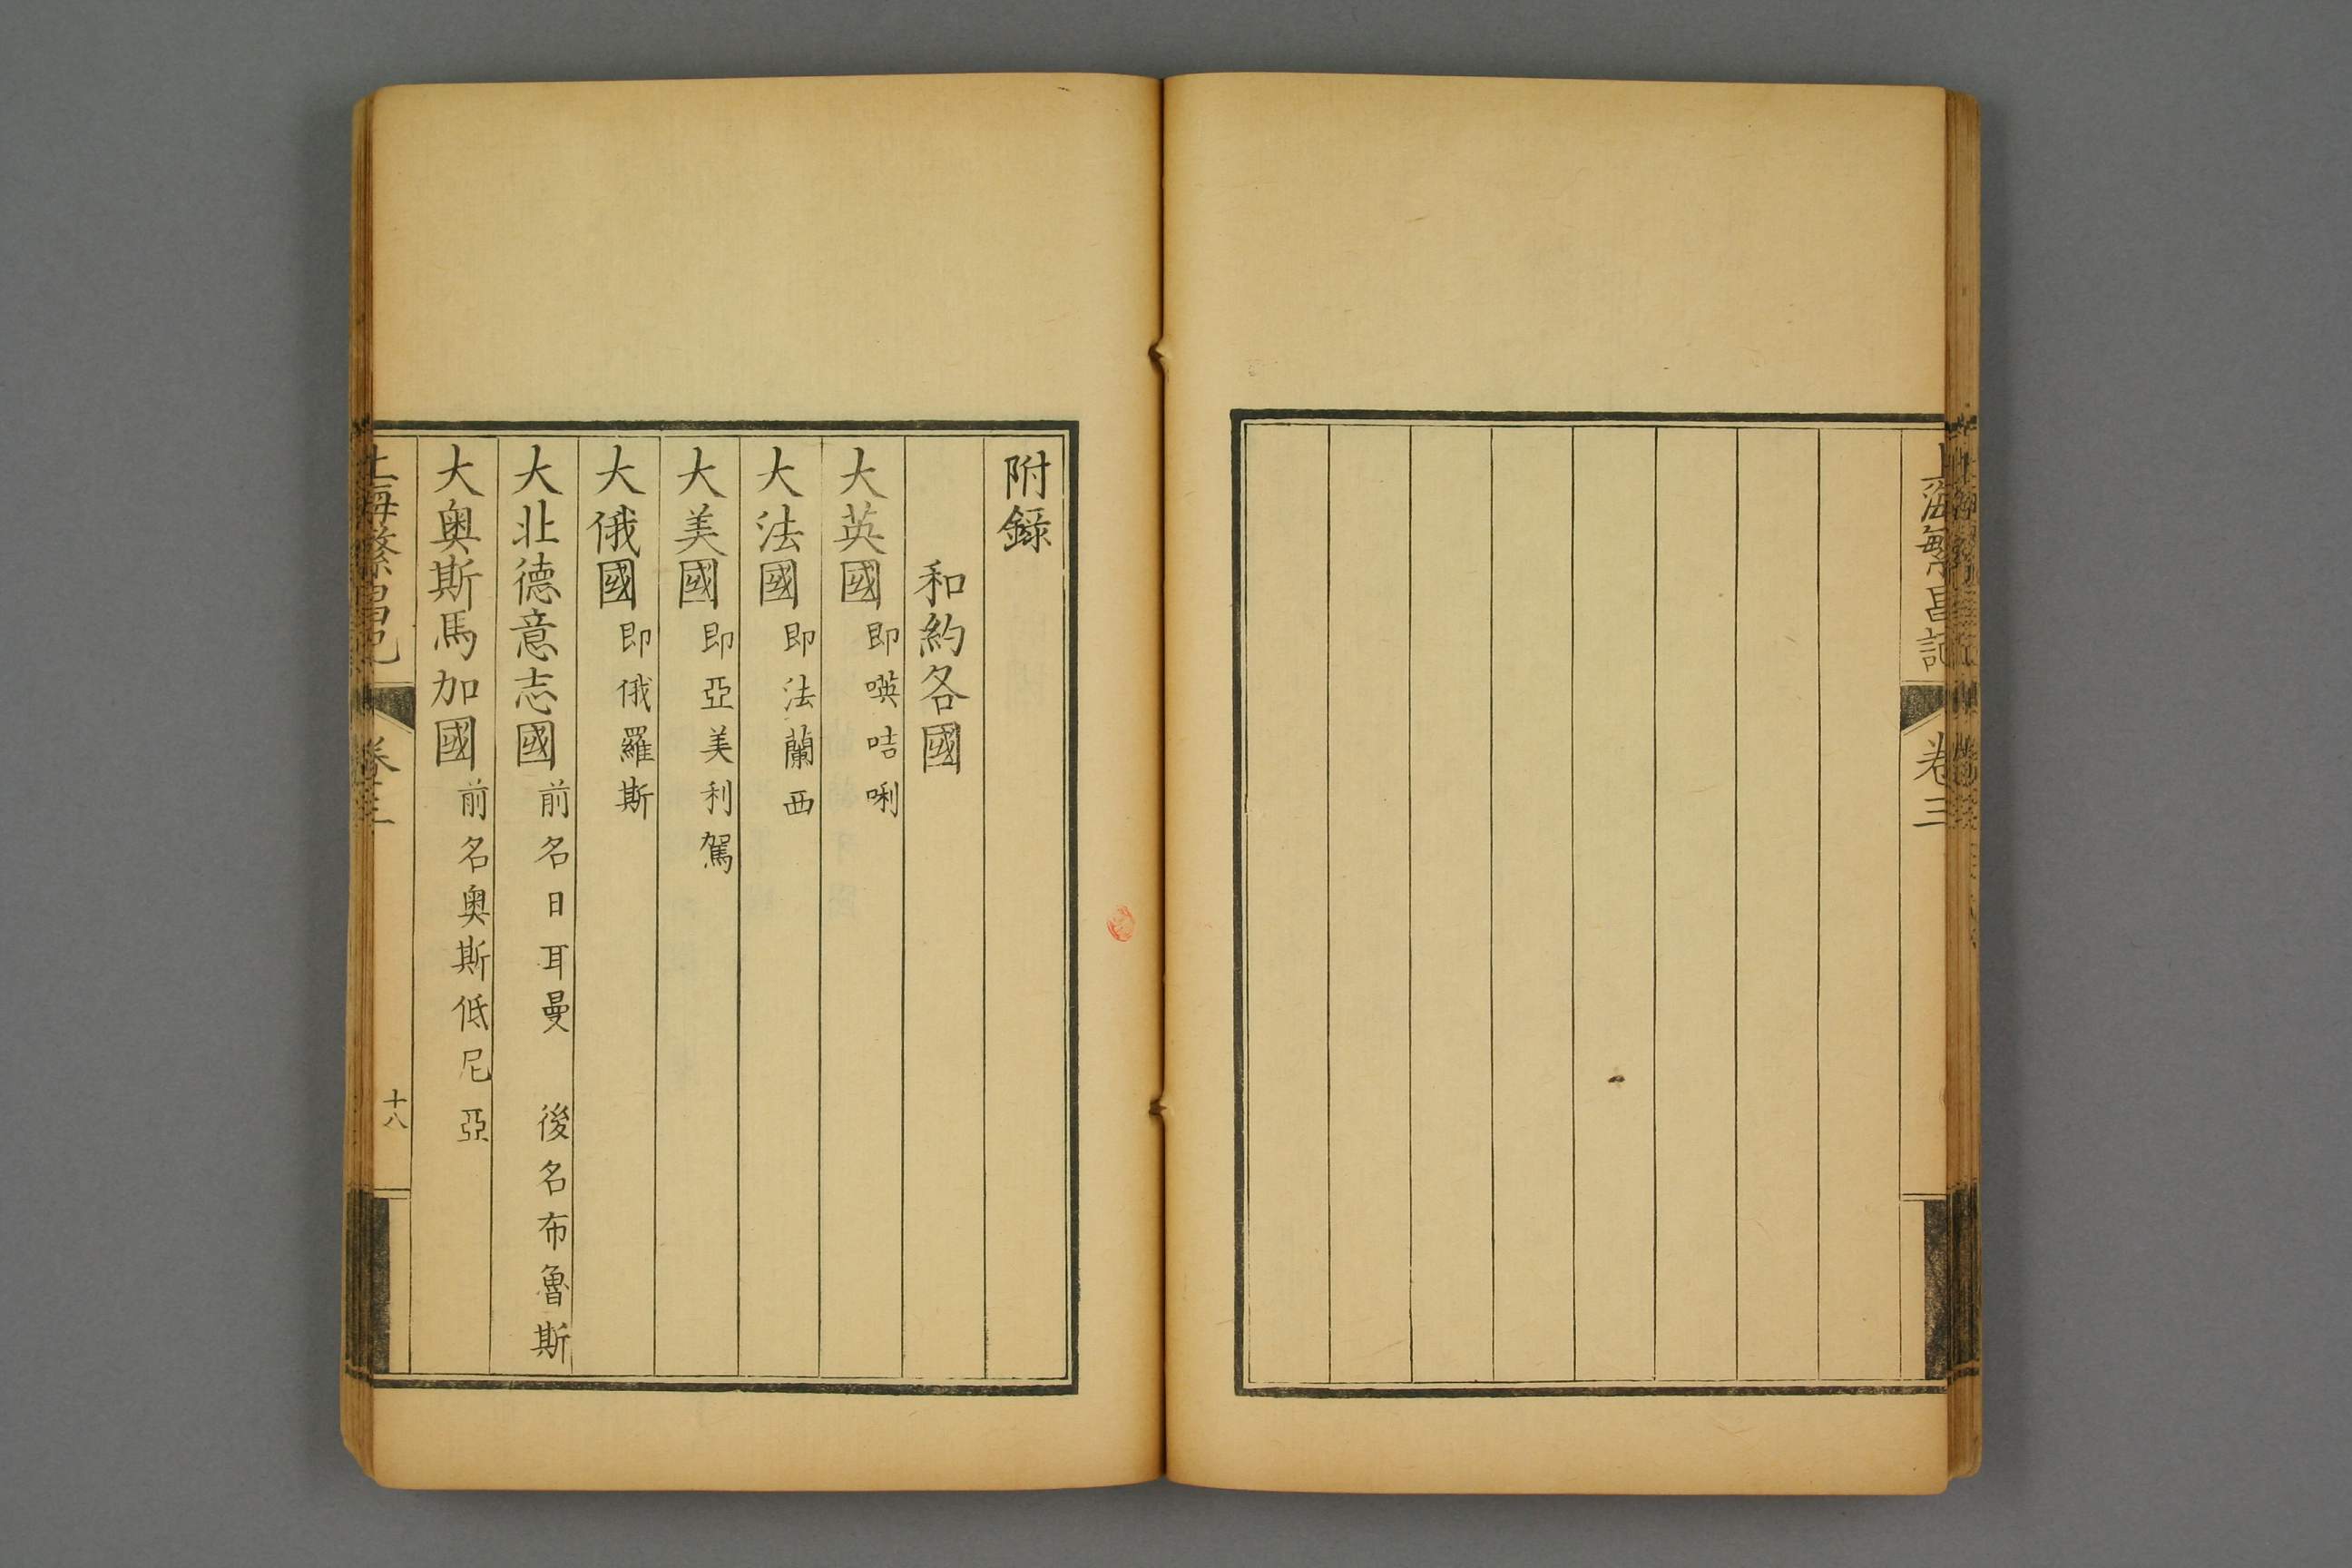 上海繁昌記 卷三
附錄
和約各國
大英國 即𠸄咭唎
大法國 即法蘭西
大美國 即亞美利駕
大俄國 即俄羅斯
大北德意志國 前名日耳曼 後名布魯斯
大奧斯馬加國 前名奧斯低尼亞
上海繁昌記 卷三 十八